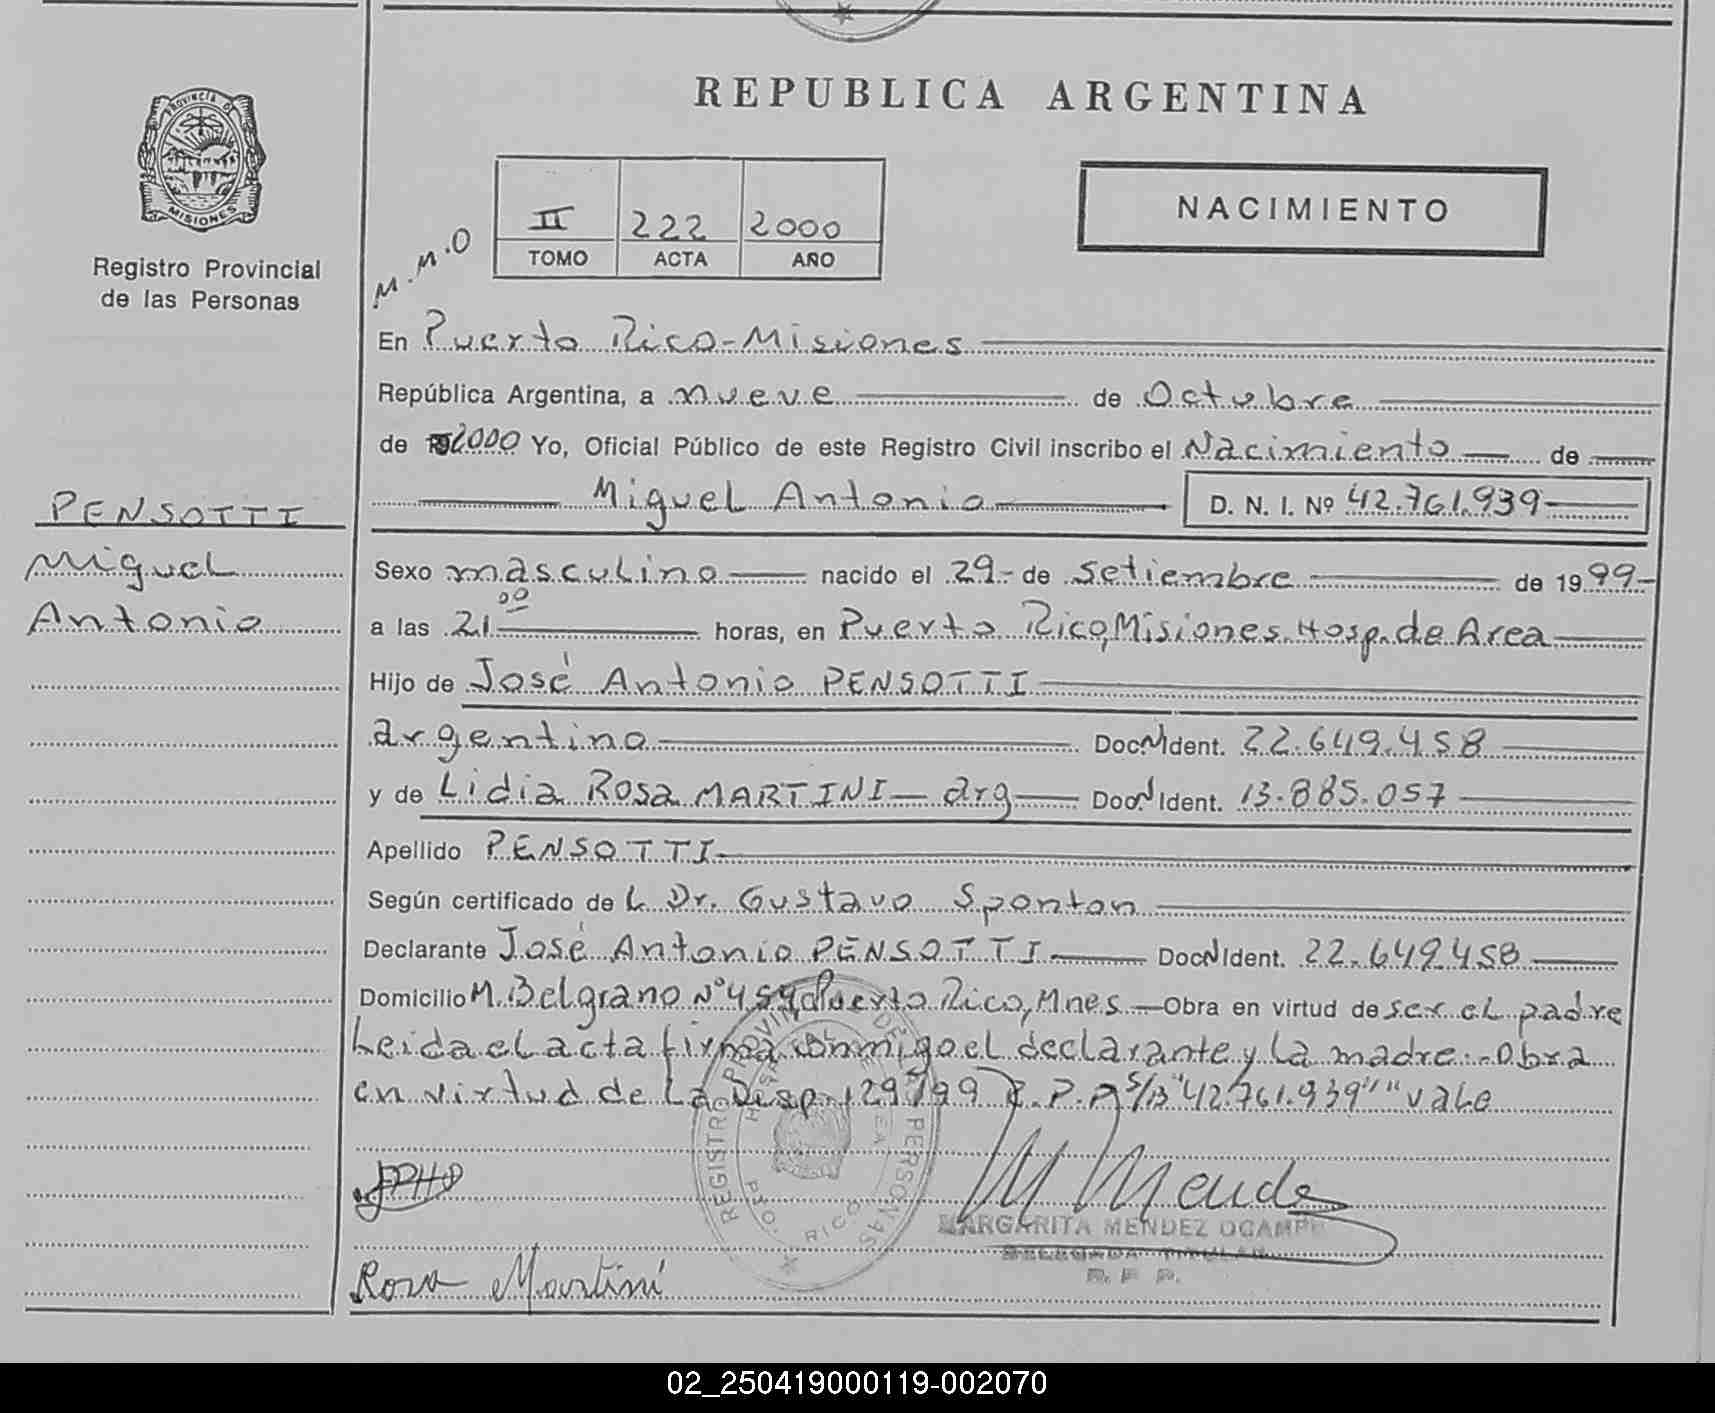 REPUBLICA ARGENTINA
PROVINCIA DE
MISIONES
Registro Provincial
de las Personas
NACIMIENTO
II 222 2000
TOMO ACTA AÑO
M.M.O
En Puerto Rico-Misiones
República Argentina, a nueve de Octubre
de 2000 Yo, Oficial Público de este Registro Civil inscribo el Nacimiento de
Miguel Antonio D. N. I. Nº 42.761.939
PENSOTTI
Miguel
Antonio
Sexo masculino nacido el 29- de Setiembre de 1999-
a las 21 00 horas, en Puerto Rico, Misiones. Hosp. de Area
Hijo de José Antonio PENSOTTI
argentino Doc.N Ident. 22.649.458
y de Lidia Rosa MARTINI - arg Doc.N Ident. 13.885.057
Apellido PENSOTTI
Según certificado de L Dr. Gustavo Sponton
Declarante José Antonio PENSOTTI Doc.N Ident. 22.649.458
Domicilio M. Belgrano Nº Puerto Rico, Mnes - Obra en virtud de ser el padre
Leida el acta firma conmigo el declarante y la madre.-Obra
en virtud de La Disp. 129/99 R.P.P S/B "42.761.939" "vale
REGISTRO PROVINCIAL DE LAS PERSONAS
HOSPITAL DE AREA
PTO. RICO
M Mendez
MARGARITA MENDEZ OCAMPO
DELEGADA TITULAR
R. P. P.
Rosa Martini
02_250419000119-002070